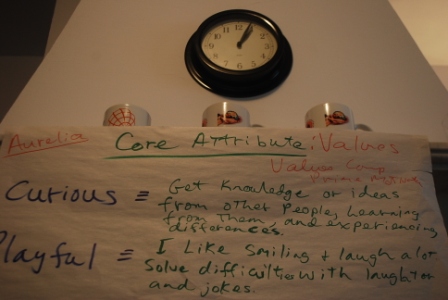 Aurelia Core Attribute: Values
Values Comp
Curious = Get knowledge or ideas
from other People, Learning
from Them, and experiencing
differences.
Playful = I Like Smiling + laugh a lot
Solve difficulties with laughter
and jokes.